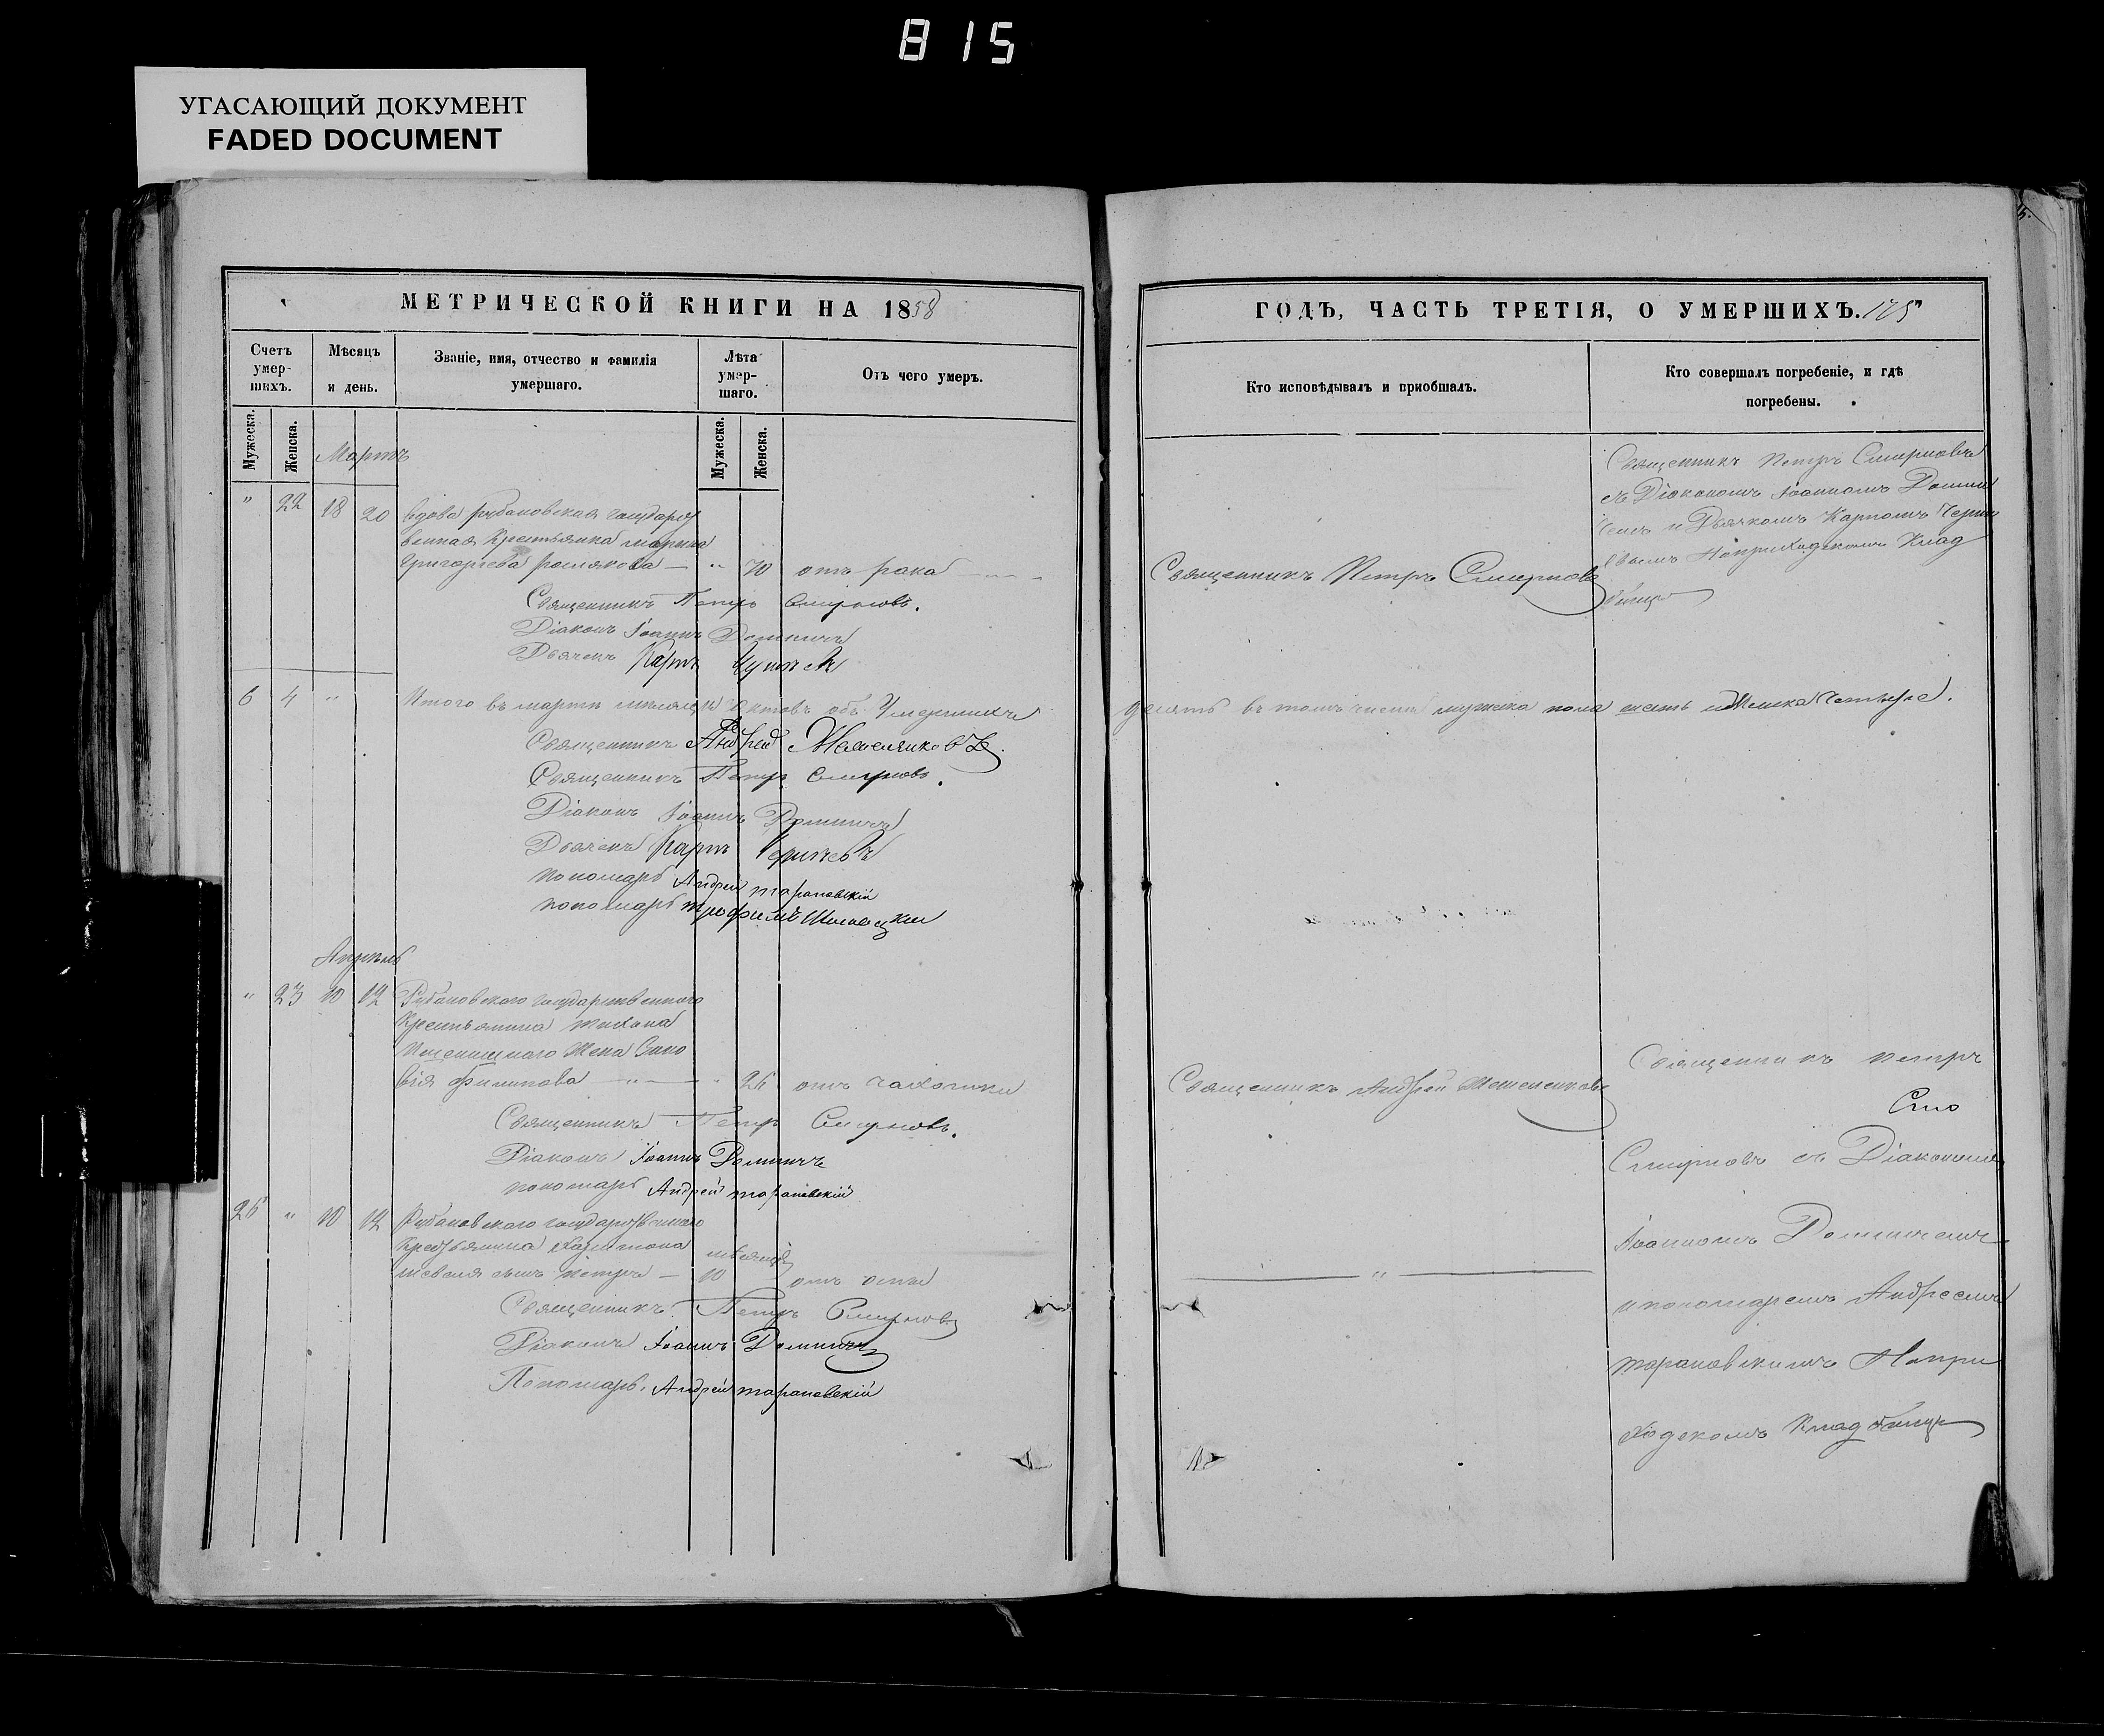 815
УГАСАЮЩИЙ ДОКУМЕНТ
FADED DOCUMENT
МЕТРИЧЕСКОЙ КНИГИ НА 1858
Счетъ умер-шихъ.
Мѣсяцъ и день.
Званіе, имя, отчество и фамилія умершаго.
Лѣта умер-шаго.
Отъ чего умеръ.
Мужеска.
Женска.
Мужеска.
Женска.
Мартъ
" 22 18 20 Вдова рубановская государст
венная Крестьянка марина
Григориева — " 70 отъ рака
Священникъ Петръ Смирновъ.
Діаконъ Іоаннъ Доминичъ
Дьячекъ Карпъ
6 4 " Итого въ мартѣ мѣсяцѣ Актовъ объ Умершихъ
Священникъ Андрей
Священникъ Петръ Смирновъ.
Діаконъ Іоаннъ Доминичъ
Дьячекъ Карпъ
пономарь Андрей тарановскій
пономарь трофимъ
Апрѣль
" 23 10 12 Рубановского государственного
Крестьянина тихона
Пшенишного Жена Сино
вія филипова — " 26 отъ чахотки
Священникъ Петръ Смирновъ.
Діаконъ Іоаннъ Доминичъ
пономарь Андрей тарановскій
26 " 10 12 Рубановского государственного
Крестьянина Харитона мѣсяцей
шевеля сынъ петръ — 10 отъ оспы
Священникъ Петръ Смирновъ
Діаконъ Іоаннъ Доминичъ
Пономарь Андрей тарановскій
ГОДЪ, ЧАСТЬ ТРЕТІЯ, О УМЕРШИХЪ. 175
Кто исповѣдывалъ и приобщалъ.
Кто совершалъ погребеніе, и гдѣ погребены.
Священникъ Петръ Смирновъ
съ Діакономъ Іоанномъ Домини
чемъ и Дьячкомъ Карпомъ
Наприходскомъ Клад
бищѣ
Священникъ Петръ Смирновъ
десять въ томъ числѣ мужска пола шесть и Женска Четыре.
Священникъ Андрей
Священникъ петръ
Смирновъ съ Діакономъ
Іоанномъ Доминичемъ
и пономаремъ Андреемъ
тарановскимъ Напри
ходскомъ Кладбищѣ